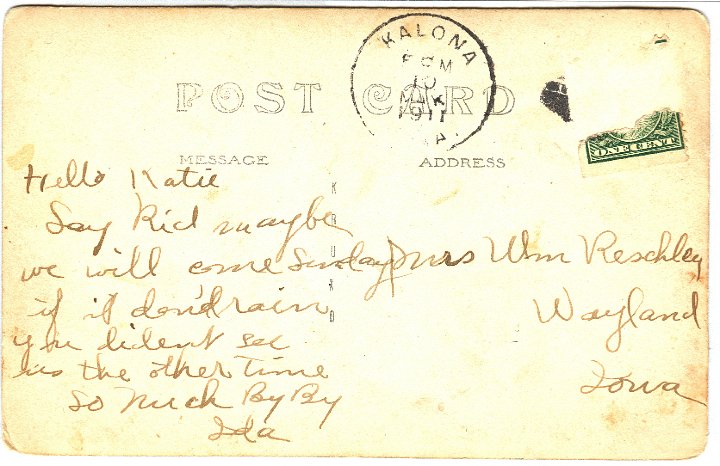 KALONA
1911
POST CARD
MESSAGE
ADDRESS
ONE CENT
Hello Katie
Say Kid maybe
we will come Sunday
if it don'd rain
you dident see
us the other time
So Much By By
Ida
Mrs Wm Reschley
Wayland
Iowa